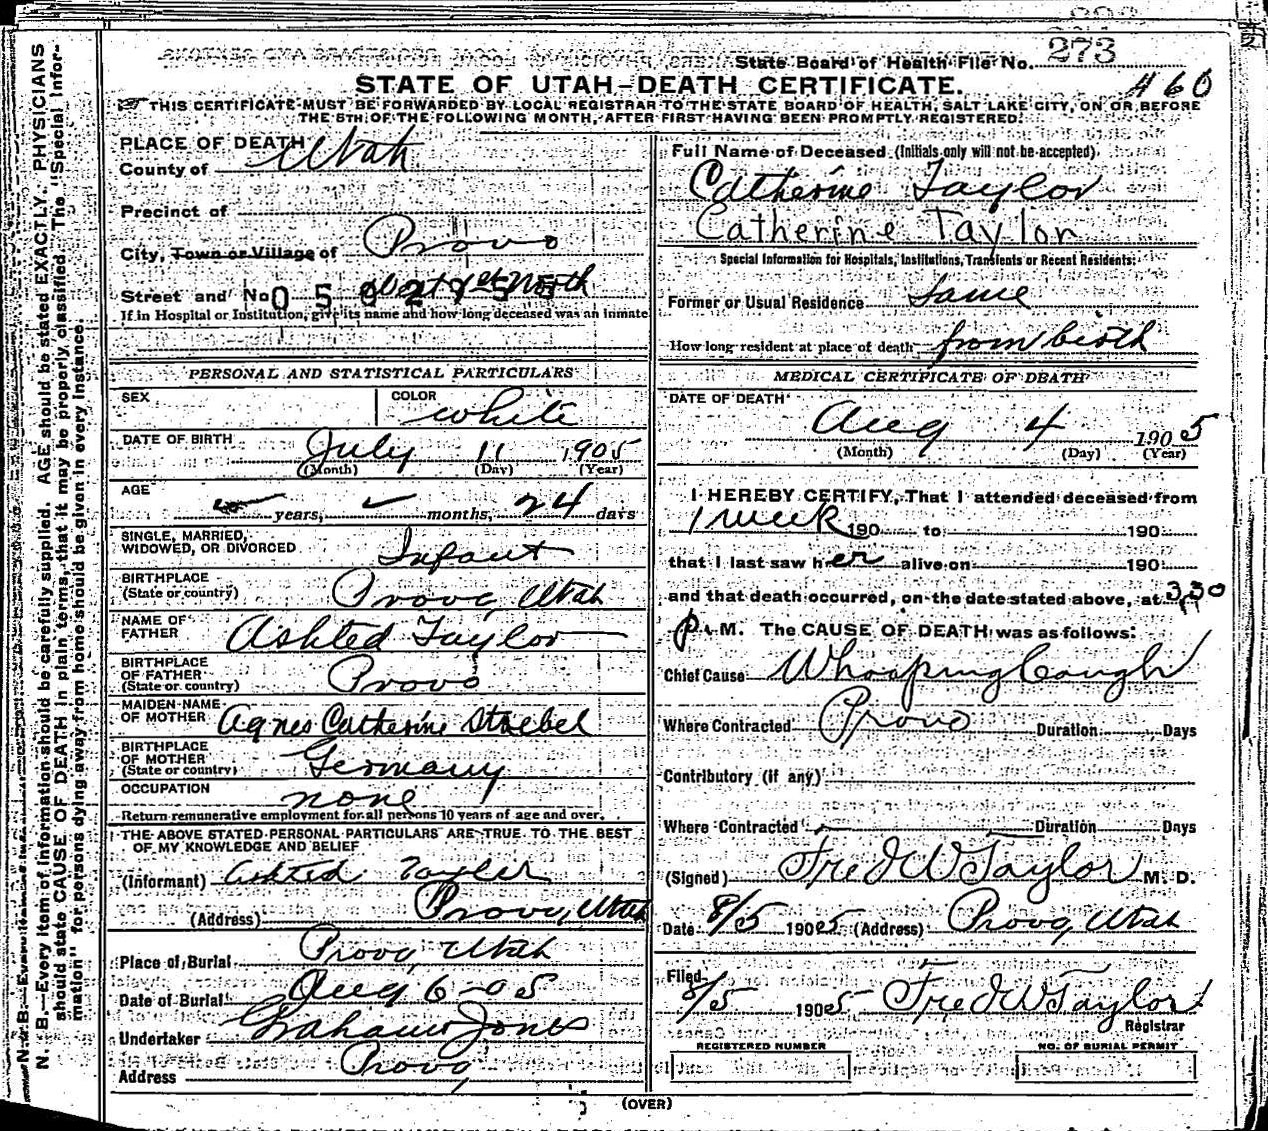 State Board of Health File No. 273
STATE OF UTAH-DEATH CERTIFICATE.
460
THIS CERTIFICATE MUST BE FORWARDED BY LOCAL REGISTRAR TO THE STATE BOARD OF HEALTH, SALT LAKE CITY, ON OR BEFORE
THE 5TH OF THE FOLLOWING MONTH, AFTER FIRST HAVING BEEN PROMPTLY REGISTERED.
PLACE OF DEATH
County of Utah
Precinct of
City, Town or Village of Provo
Street and No. 1st North
0 5 0 2 5
If in Hospital or Institution, give its name and how long deceased was an inmate
PERSONAL AND STATISTICAL PARTICULARS
SEX
COLOR white
DATE OF BIRTH July 11 1905
(Month) (Day) (Year)
AGE
years, months, 24 days
SINGLE, MARRIED,
WIDOWED, OR DIVORCED Infant
BIRTHPLACE
(State or country) Provo, Utah
NAME OF
FATHER Ashted Taylor
BIRTHPLACE
OF FATHER
(State or country) Provo
MAIDEN NAME
OF MOTHER Agnes Catherine Stoebel
BIRTHPLACE
OF MOTHER
(State or country) Germany
OCCUPATION
none
Return remunerative employment for all persons 10 years of age and over.
THE ABOVE STATED PERSONAL PARTICULARS ARE TRUE TO THE BEST
OF MY KNOWLEDGE AND BELIEF
(Informant) Ashted Taylor
(Address) Provo, Utah
Place of Burial Provo, Utah
Date of Burial Aug 6-05
Undertaker Graham Jones
Address Provo,
Full Name of Deceased (Initials only will not be accepted)
Catherine Taylor
Catherine Taylor
Special Information for Hospitals, Institutions, Transients or Recent Residents:
Former or Usual Residence Same
How long resident at place of death from birth
MEDICAL CERTIFICATE OF DEATH
DATE OF DEATH
Aug 4 1905
(Month) (Day) (Year)
I HEREBY CERTIFY, That I attended deceased from
1 week 190 to 190
that I last saw her alive on 190
and that death occurred, on the date stated above, at 3,30
P. M. The CAUSE OF DEATH was as follows:
Chief Cause Whooping Cough
Where Contracted Provo Duration Days
Contributory (if any)
Where Contracted Duration Days
(Signed) Fred W Taylor M. D.
Date 8/5 1905 (Address) Provo, Utah
Filed 8/5 1905 Fred W Taylor
Registrar
REGISTERED NUMBER
NO. OF BURIAL PERMIT
(OVER)
N. B.—Every item of information should be carefully supplied. AGE should be stated EXACTLY. PHYSICIANS
should state CAUSE OF DEATH in plain terms, that it may be properly classified. The "Special Infor-
mation" for persons dying away from home should be given in every instance.